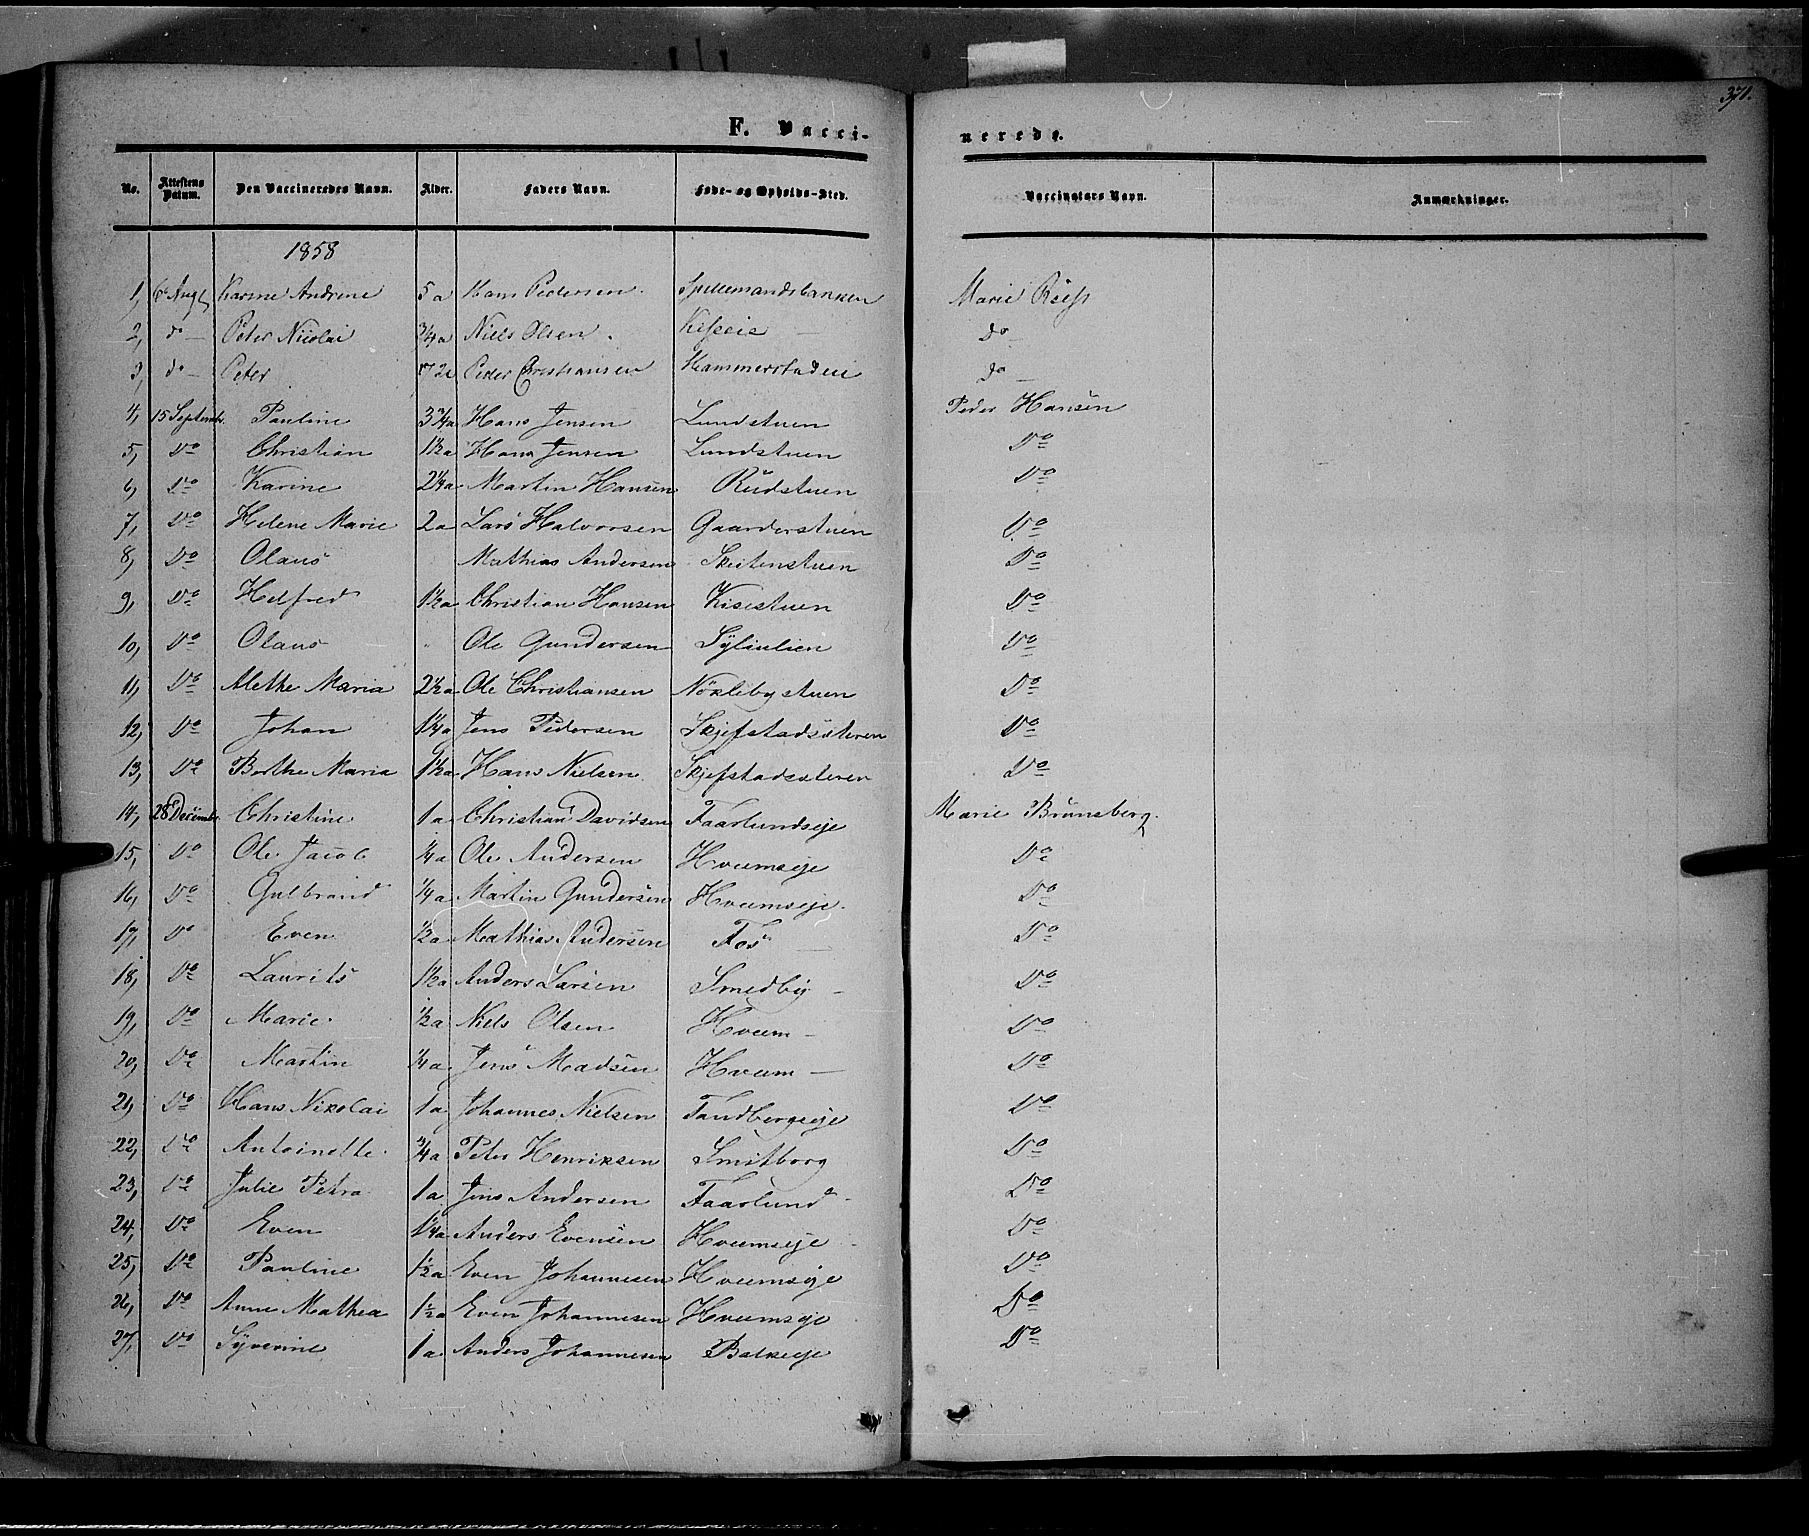 371.
F. Vacci- nerede.
No. Attestens Datum. Den Vaccineredes Navn. Alder. Faders Navn. Føde- og Opholds-Sted. Vaccinators Navn. Anmærkninger.
1858
1, 6 Aug Karine Andrine 5 a Hans Pedersen. Spillemandsbakken Marie
2, do Peter Nicolai 3/4 a Niels Olsen. do
3, do Peter Peder Christiansen Hammerstaden do
4, 15 Septembr. Pauline 3 3/4 a Hans Jensen Lundstuen Peder Hansen
5, Do Christian 1 1/2 a Hans Jensen Lundstuen Do
6, Do Karine 2 1/4 a Martin Hansen Rudstuen Do
7, Do Helene Marie 2 a Lars Halvorsen Gaarderstuen Do
8, Do Olaus Mathias Andersen Do
9, Do Helfred 1 1/2 a Christian Hansen Kisestuen Do
10, Do Olaus " Ole Gundersen Do
11, Do Alethe Maria 2 1/2 a Ole Christiansen Nöklebystuen Do
12, Do Johan 1 1/4 a Jens Pedersen Skjefstadsæteren Do
13, Do Berthe Maria 1 1/2 a Hans Nielsen. Skjefstadsæteren Do
14, 28 Decembr. Christine 1 a Christian Davidsen Faarlundseje Marie Brunsberg.
15, Do Ole Jacob 1/4 a Ole Andersen Hveemseje Do
16, Do Gulbrand 1/4 a Martin Gundersen Hveemseje. Do
17, Do Even 1/2 a Mathias Andersen Fos Do
18, Do Laurits 1 1/2 a Anders Larsen Smedby Do
19, Do Marie. 1/2 a Niels Olsen Hveem Do
20, Do Martin 1/4 a Jens Madsen Hveem Do
21, Do Hans Nikolai 1 a Johannes Nielsen Tandbergseje Do
22, Do Antoinette. 3/4 a Peter Henriksen Smitborg Do
23, Do Julie Petra 1 a Jens Andersen Faarlund Do
24, Do Even 1 1/4 a Anders Evensen Hveemseje Do
25, Do Pauline 1 1/2 a Even Johannesen Hveemseje Do
26, Do Anne Mathea 1 1/2 a Even Johannesen Hveemseje Do
27, Do Syverine 1 a Anders Johannesen Balkeeje Do